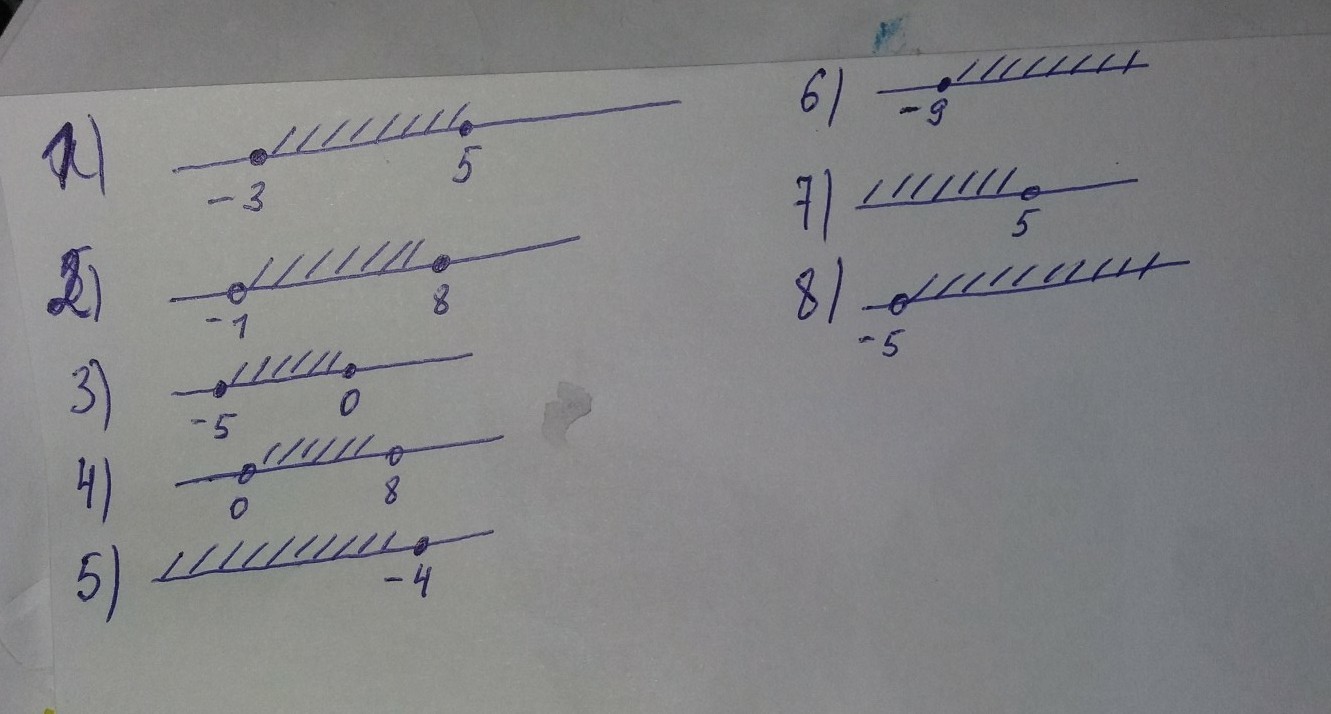 1)
-3 5
2)
-1 8
3)
-5 0
4)
0 8
5)
-4
6)
-9
7)
5
8)
-5